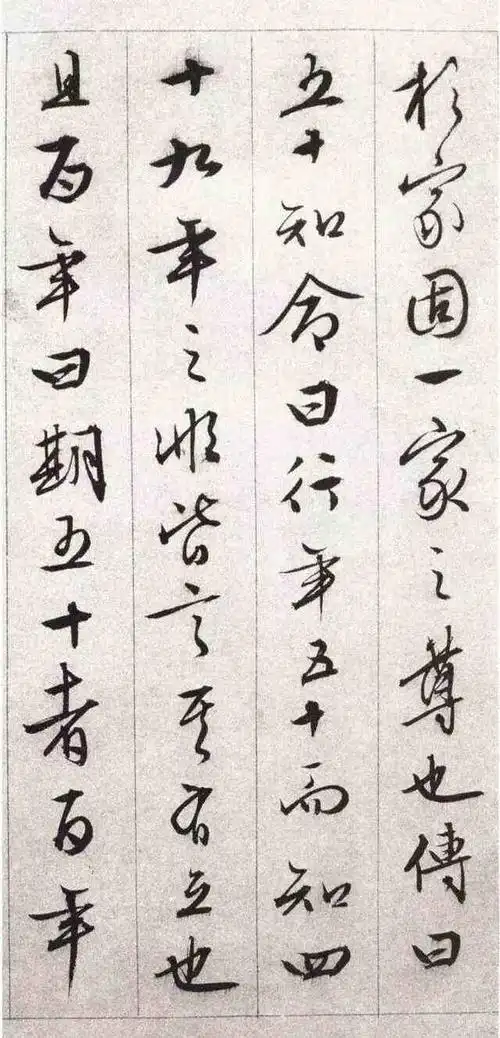 於家固一家之尊也傳曰
五十知命曰行年五十而知四
十九年之非皆言其有立也
且百年曰期五十者百年